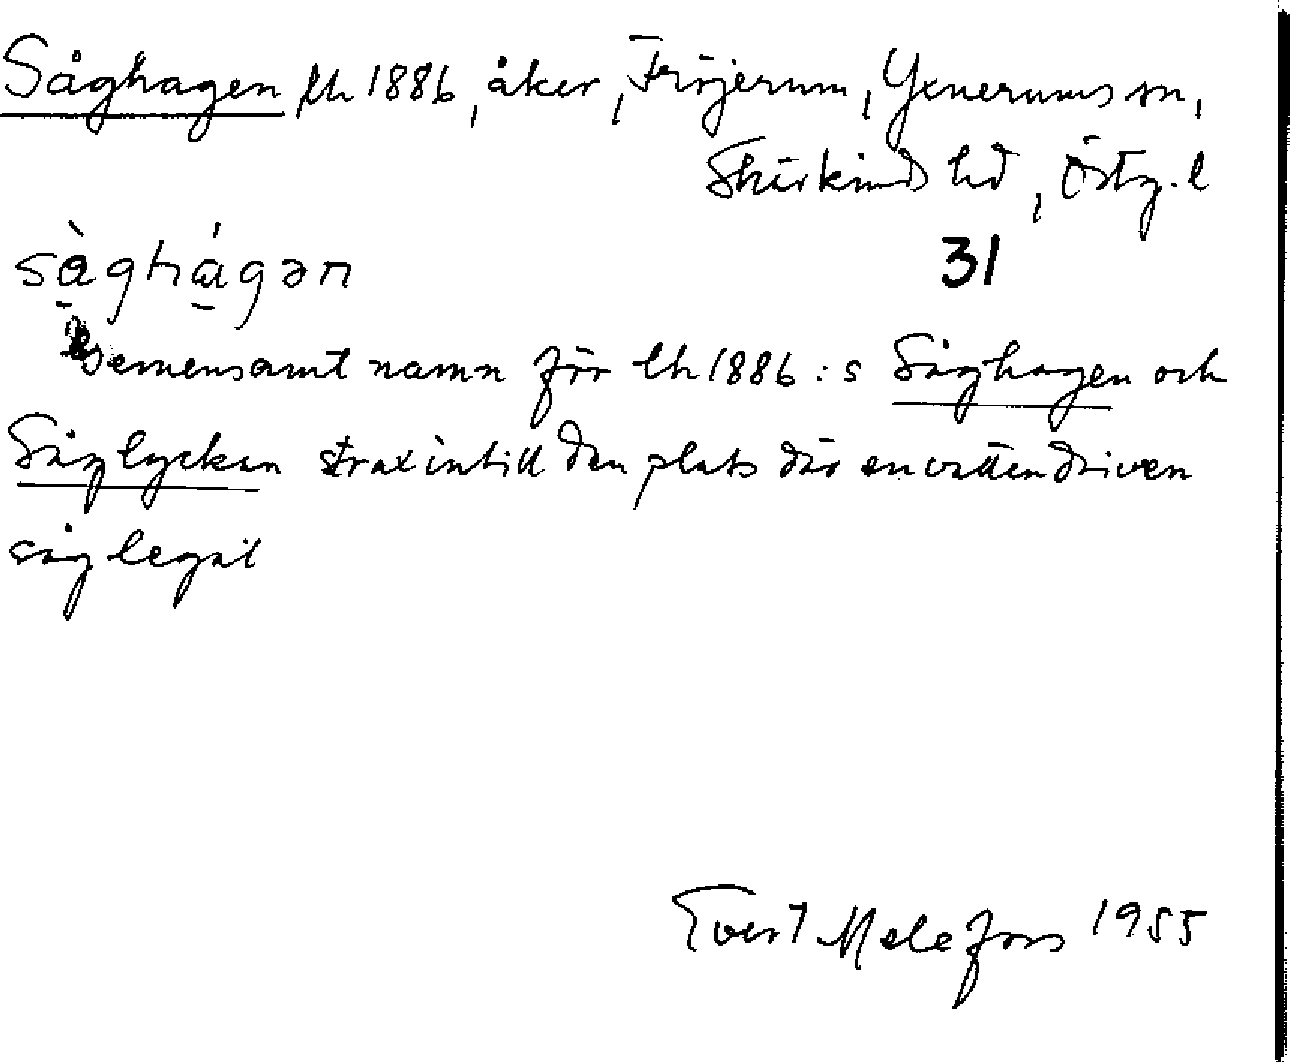 Såghagen lh 1886, åker, Fröjerum, Yxnerums sn,
Skärkinds hd, Östg.l
sàghágən
31
Gemensamt namn för lh 1886:s Såghagen och
Såglyckan strax intill den plats där en vattendriven
såg legat
Evert Melefors 1955